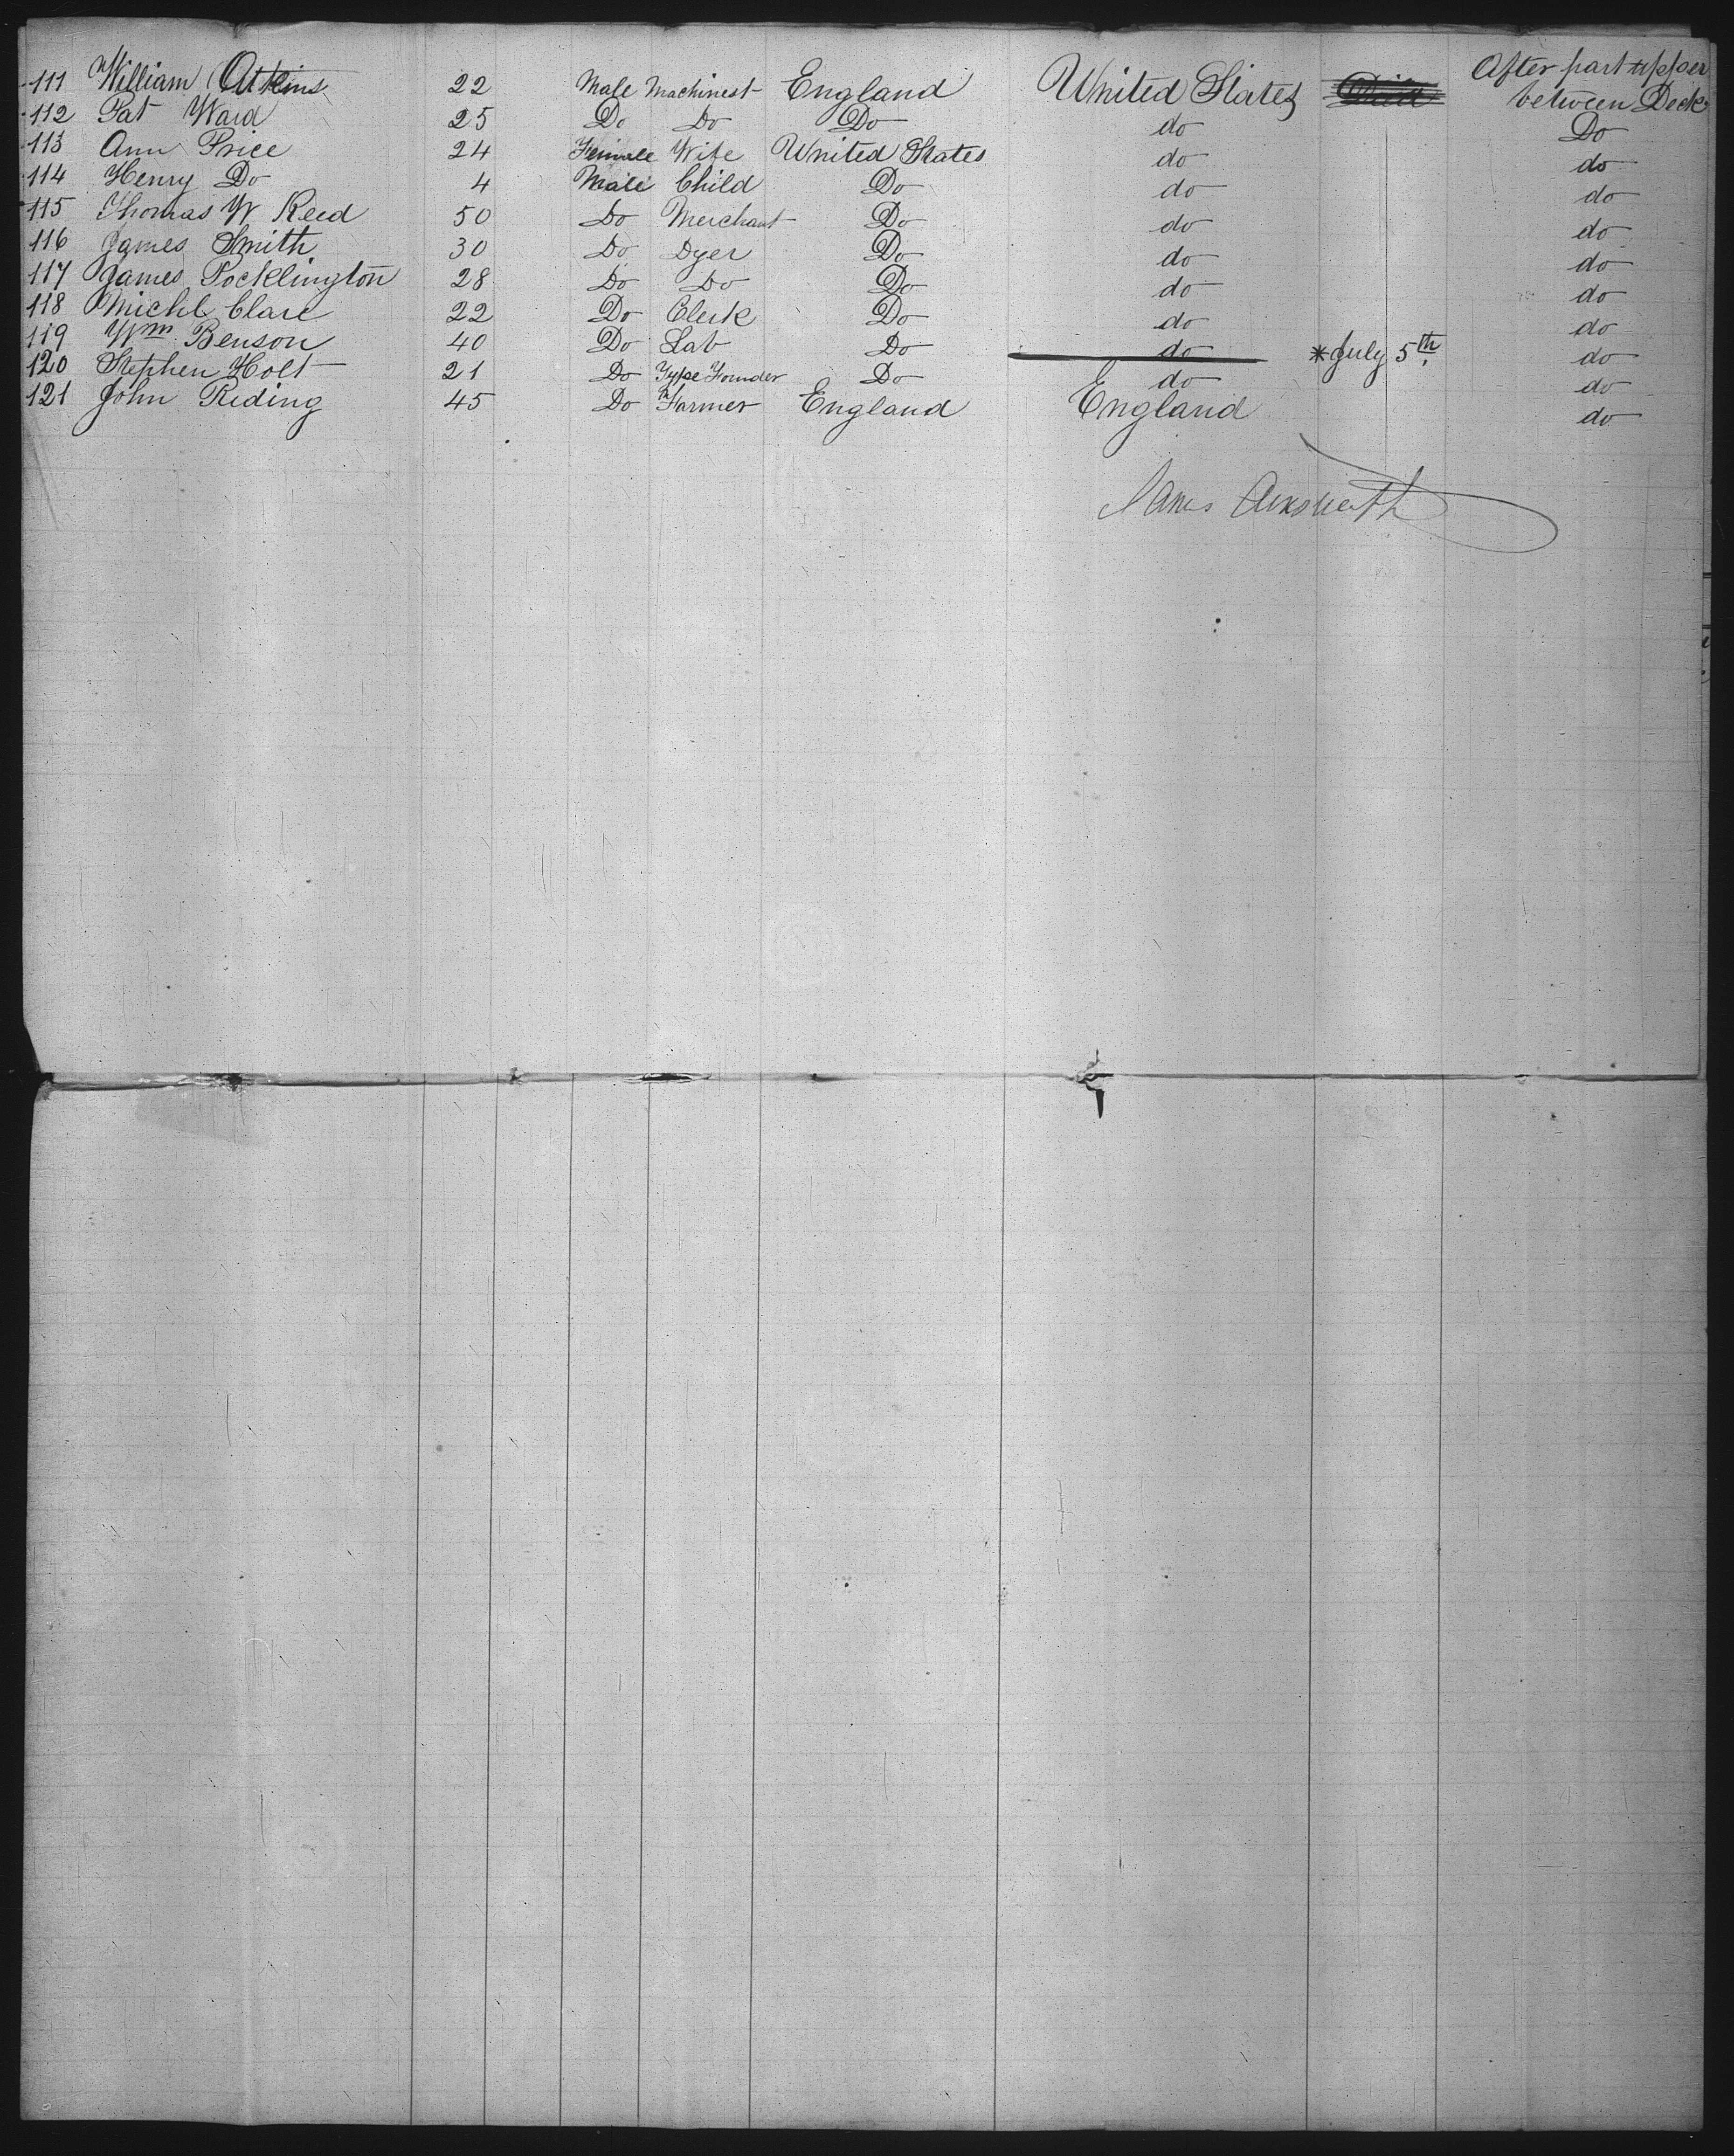 111 William Atkins 22 Male Machinest England United States Died After part upper between Deck
112 Pat Ward 25 Do Do Do do Do
113 Ann Price 24 Female Wife United States do do
114 Henry Do 4 Male Child Do do do
115 Thomas W Reed 50 Do Merchant Do do do
116 James Smith 30 Do Dyer Do do do
117 James Pocklington 28 Do Do Do do do
118 Michl Clare 22 Do Clerk Do do do
119 Wm Benson 40 Do Lab Do do * July 5th. do
120 Stephen Holt 21 Do Type Founder Do do do
121 John Riding 45 Do Farmer England England do
James Ainsworth